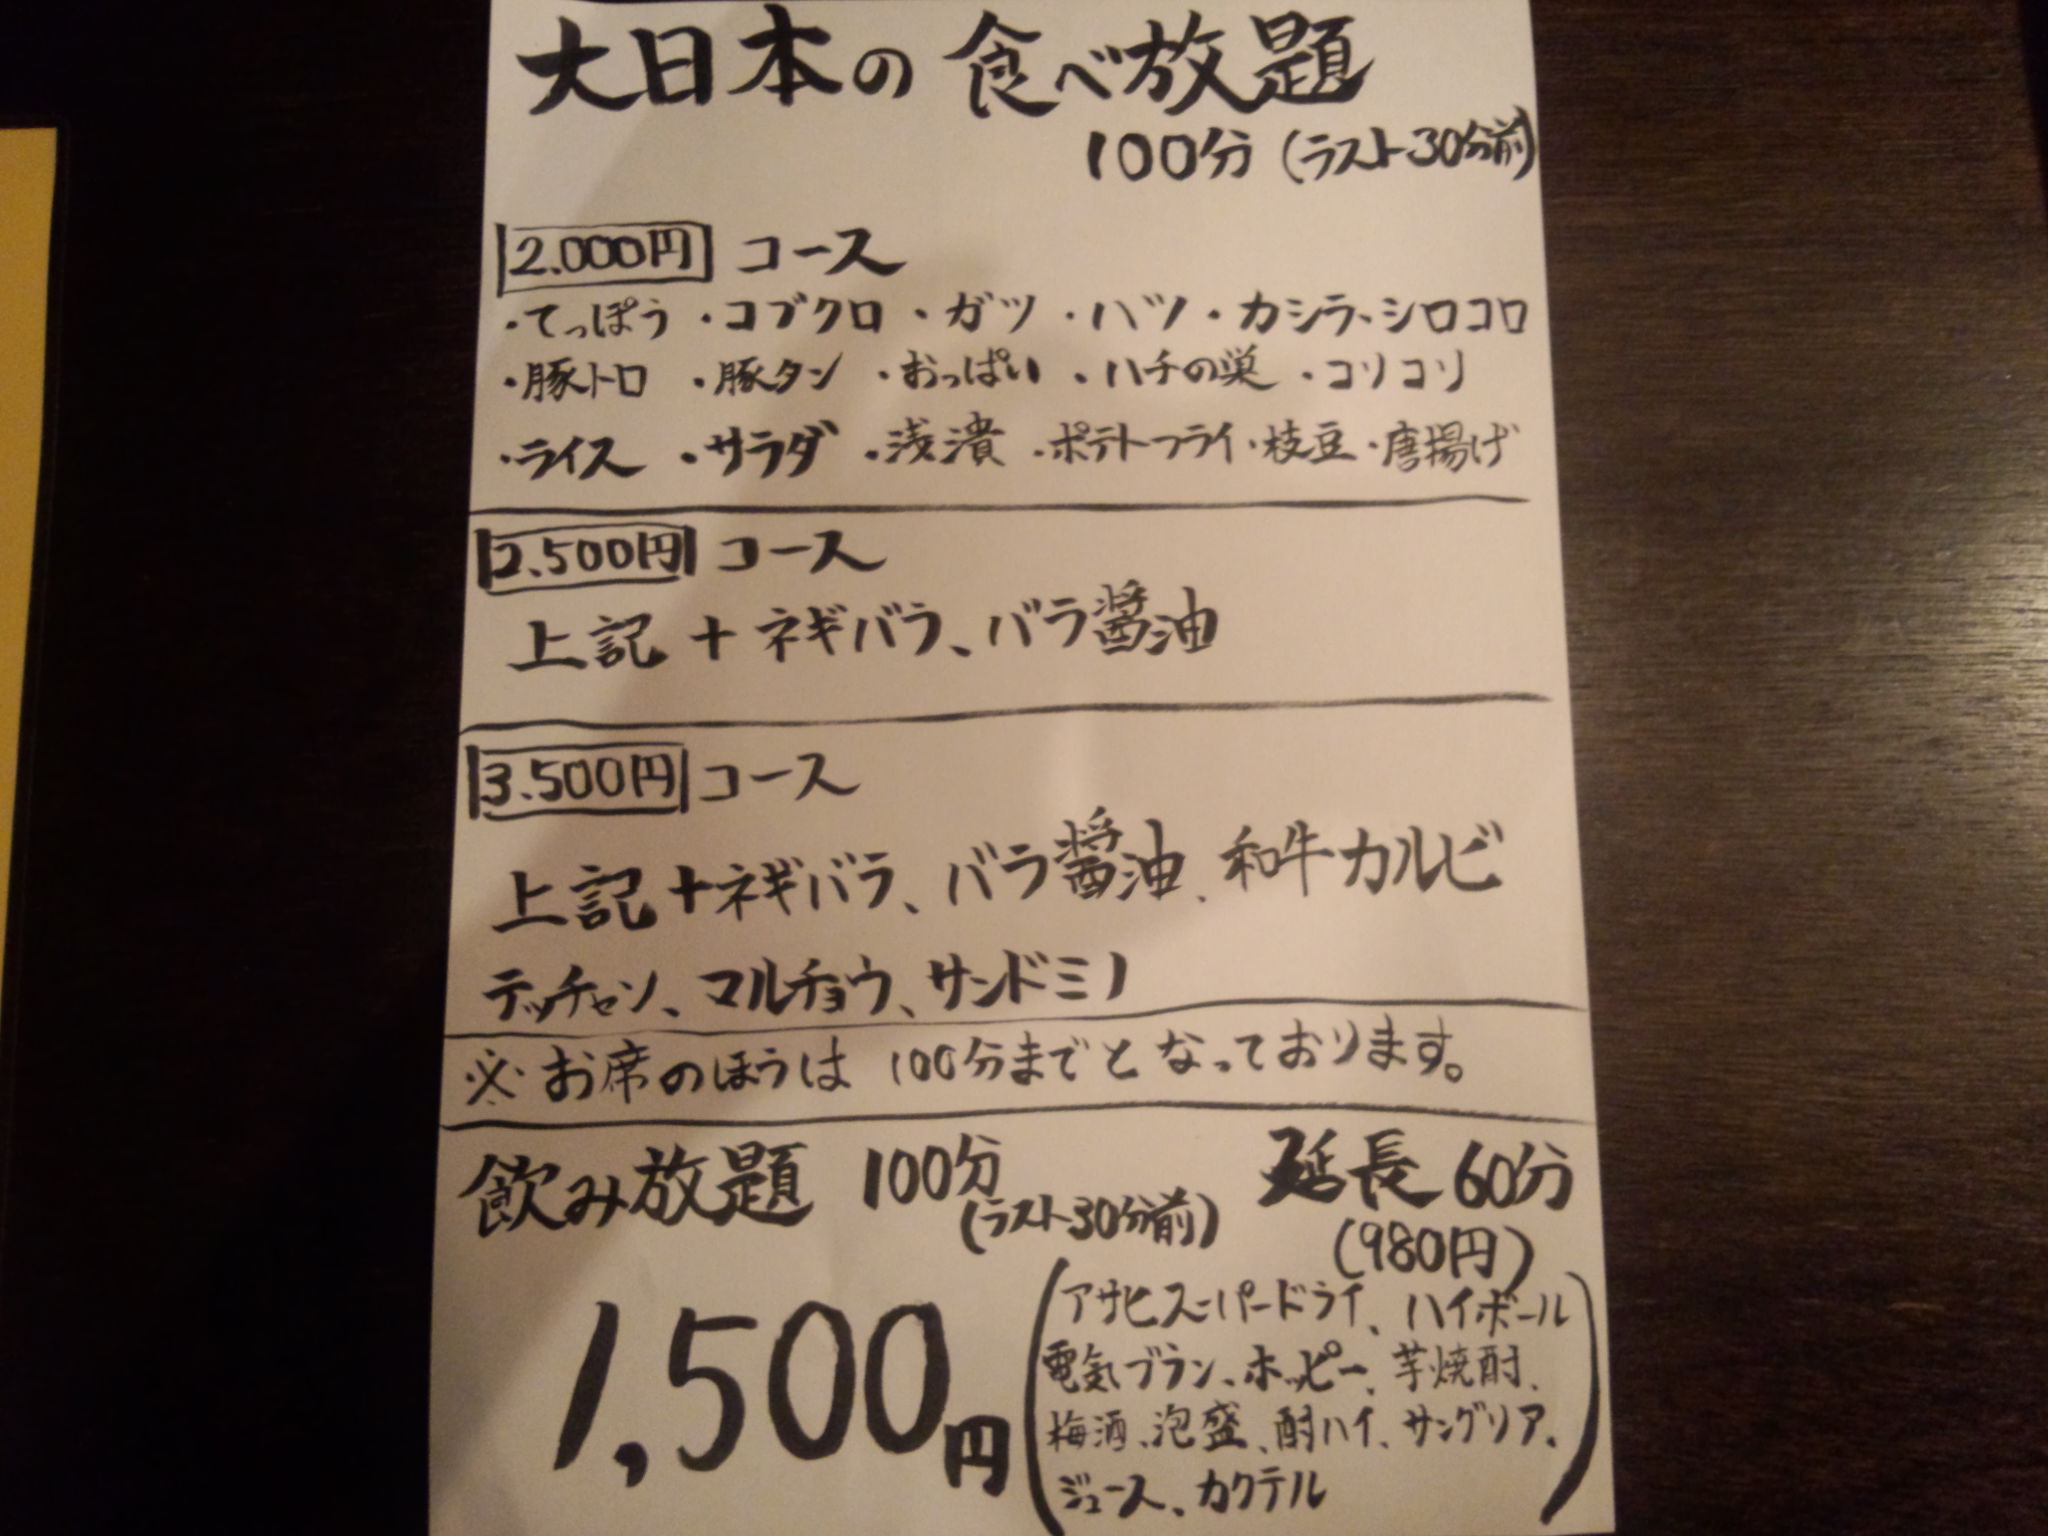 大日本の食べ放題
100分(ラスト30分前)
2,000円コース
・てっぽう・コブクロ・ガツ・ハツ・カシラ・シロコロ
・豚トロ・豚タン・おっぱい・ハチの巣・コリコリ
・ライス・サラダ・浅漬・ポテトフライ・枝豆・唐揚げ
2,500円コース
上記+ネギバラ、バラ醤油
3,500円コース
上記+ネギバラ、バラ醤油、和牛カルビ
テッチャン、マルチョウ、サンドミノ
※お席のほうは100分までとなっております。
飲み放題 100分 延長60分
(ラスト30分前) (980円)
1,500円
(アサヒスーパードライ、ハイボール
電気ブラン、ホッピー、芋焼酎、
梅酒、泡盛、酎ハイ、サングリア、
ジュース、カクテル)